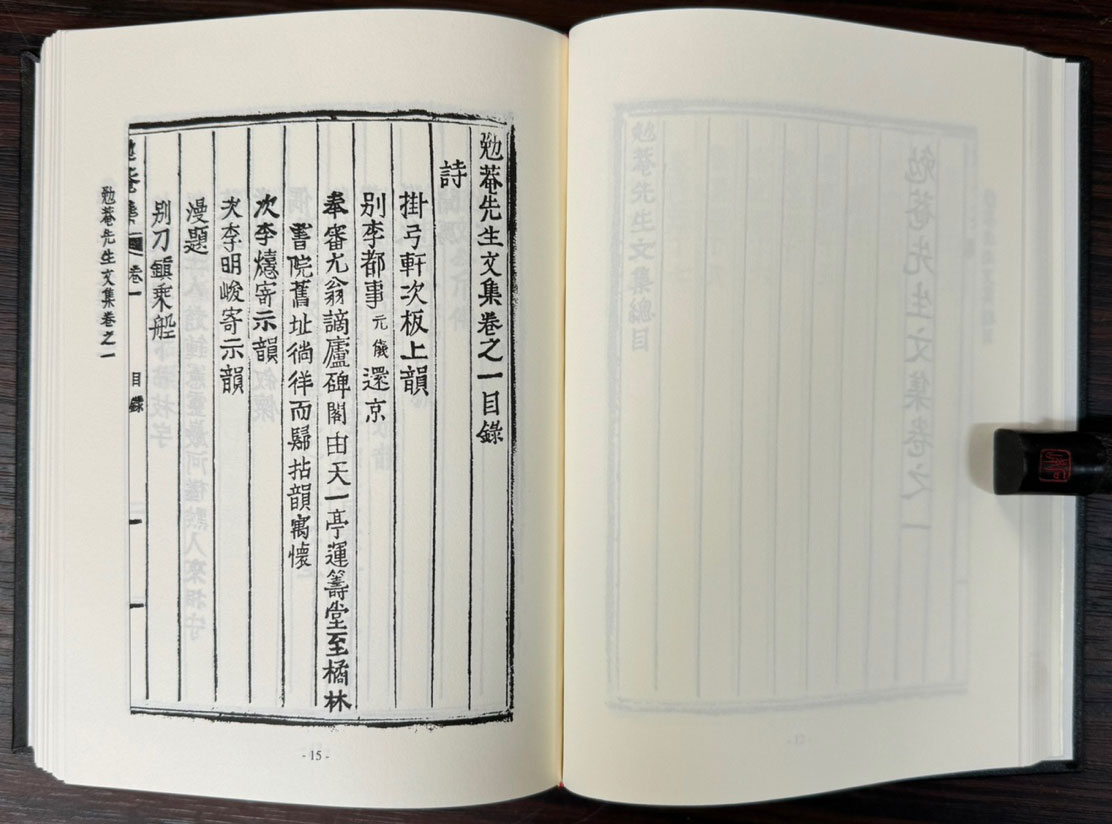 勉菴先生文集卷之一目錄
詩
掛弓軒次板上韻
別李都事元儀還京
奉審尤翁謫廬碑閣由天一亭運籌堂至橘林
書院舊址徜徉而歸拈韻寓懷
次李𤏸寄示韻
次李明峻寄示韻
漫題
別刀鎭乘船
勉菴集 卷一 目錄 一
勉菴先生文集卷之一
- 15 -